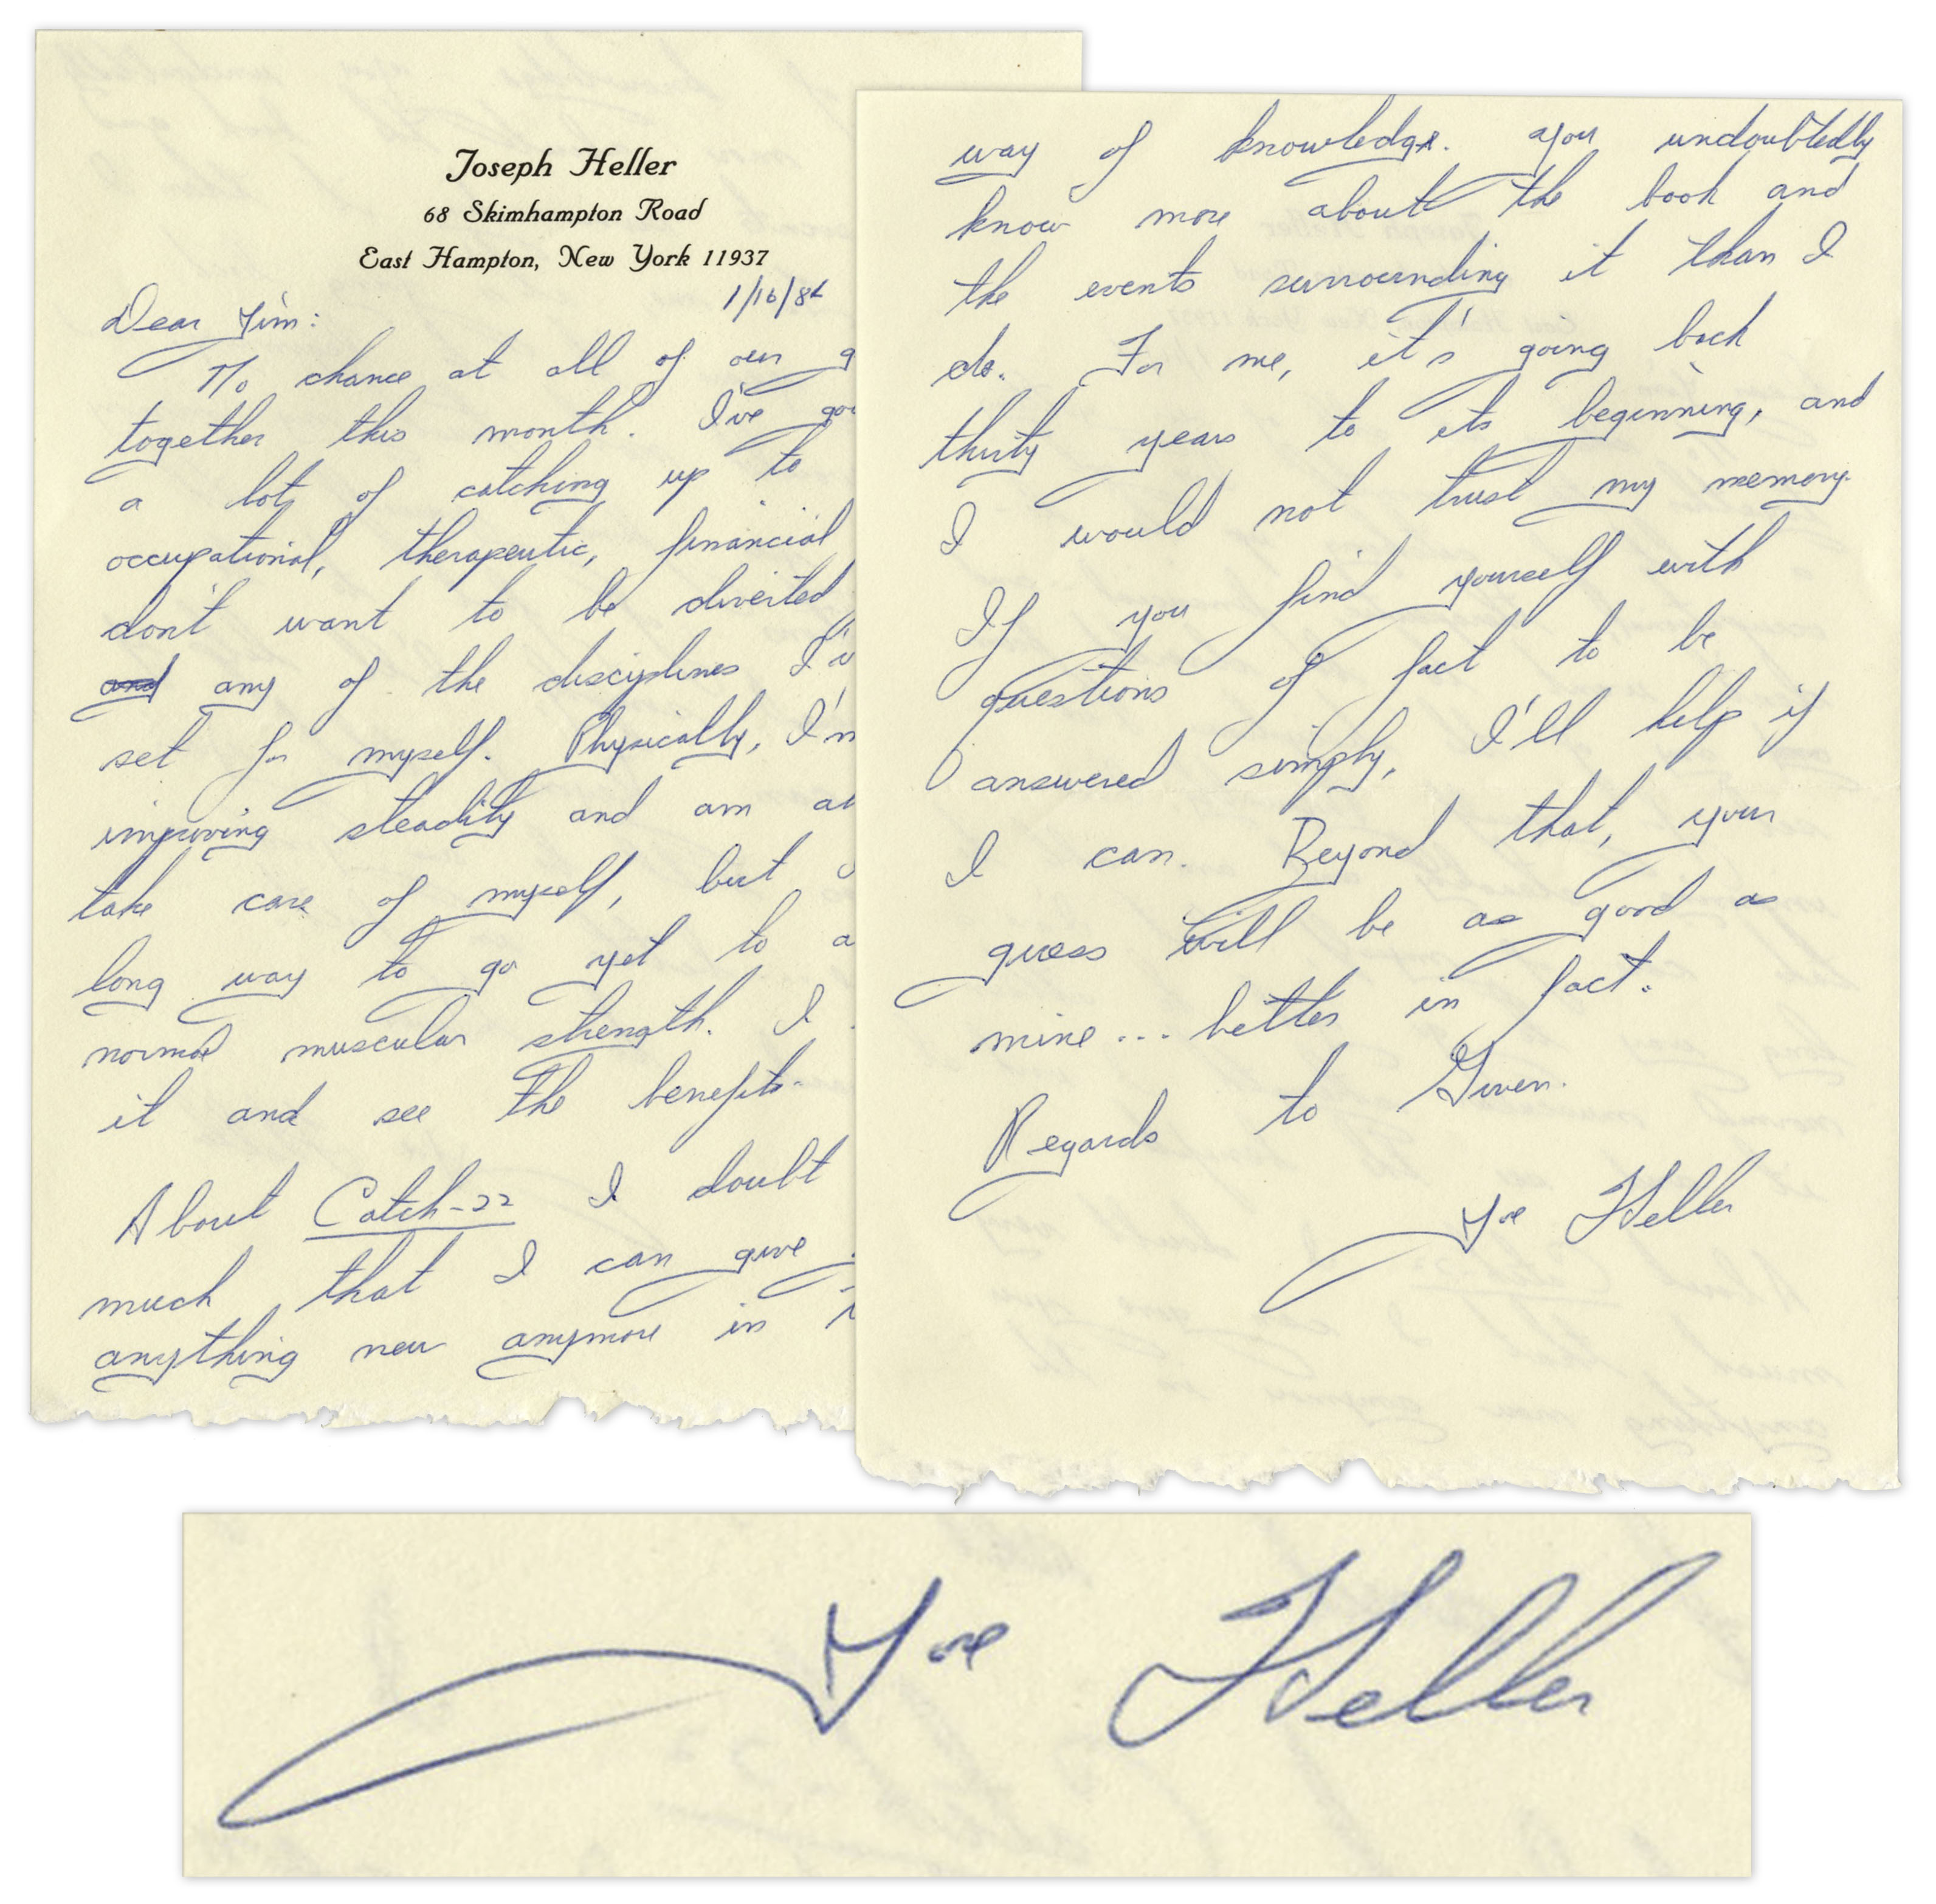 Joseph Heller
68 Skimhampton Road
East Hampton, New York 11937
1/16/8
Dear Jim:
No chance at all of our g
together this month. I've go
a lot of catching up to
occupational, therapeutic, financial
don't want to be diverted
any of the disciplines I'v
set for myself. Physically, I'm
improving steadily and am ab
take care of myself, but
long way to go yet to a
normal muscular strength. I
it and see the benefits.
About Catch-22 I doubt
much that I can give
anything new anymore in
way of knowledge. You undoubtedly
know more about the book and
the events surrounding it than I
do. For me, it's going back
thirty years to its beginning, and
I would not trust my memory.
If you find yourself with
questions of fact to be
answered simply, I'll help if
I can. Beyond that, your
guess will be as good as
mine... better in fact.
Regards to Gwen.
Joe Heller
Joe Heller